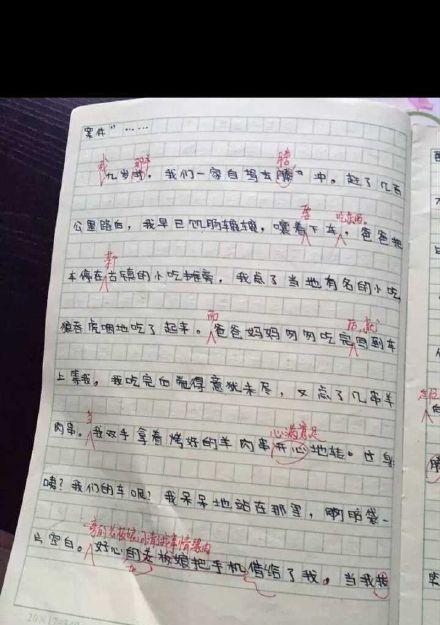 案件”……
我 那年 腾
几岁时。我们一家自驾去腾冲。赶了几百
要 吃东西。
公里路后，我早已饥肠辘辘，嚷着下车。爸爸把
车停在古镇的小吃摊旁，我点了当地有名的小吃
而 后，就
狼吞虎咽地吃了起来。爸爸妈妈匆匆吃完回到车
上等我。我吃完后觉得意犹未尽，又点了几串羊
心满意足
肉串。我双手拿着烤好的羊肉串开心地转过身
咦？我们的车呢？我呆呆地站在那里，脑袋一
片空白。好心的老板娘把手机借给了我。当我拨